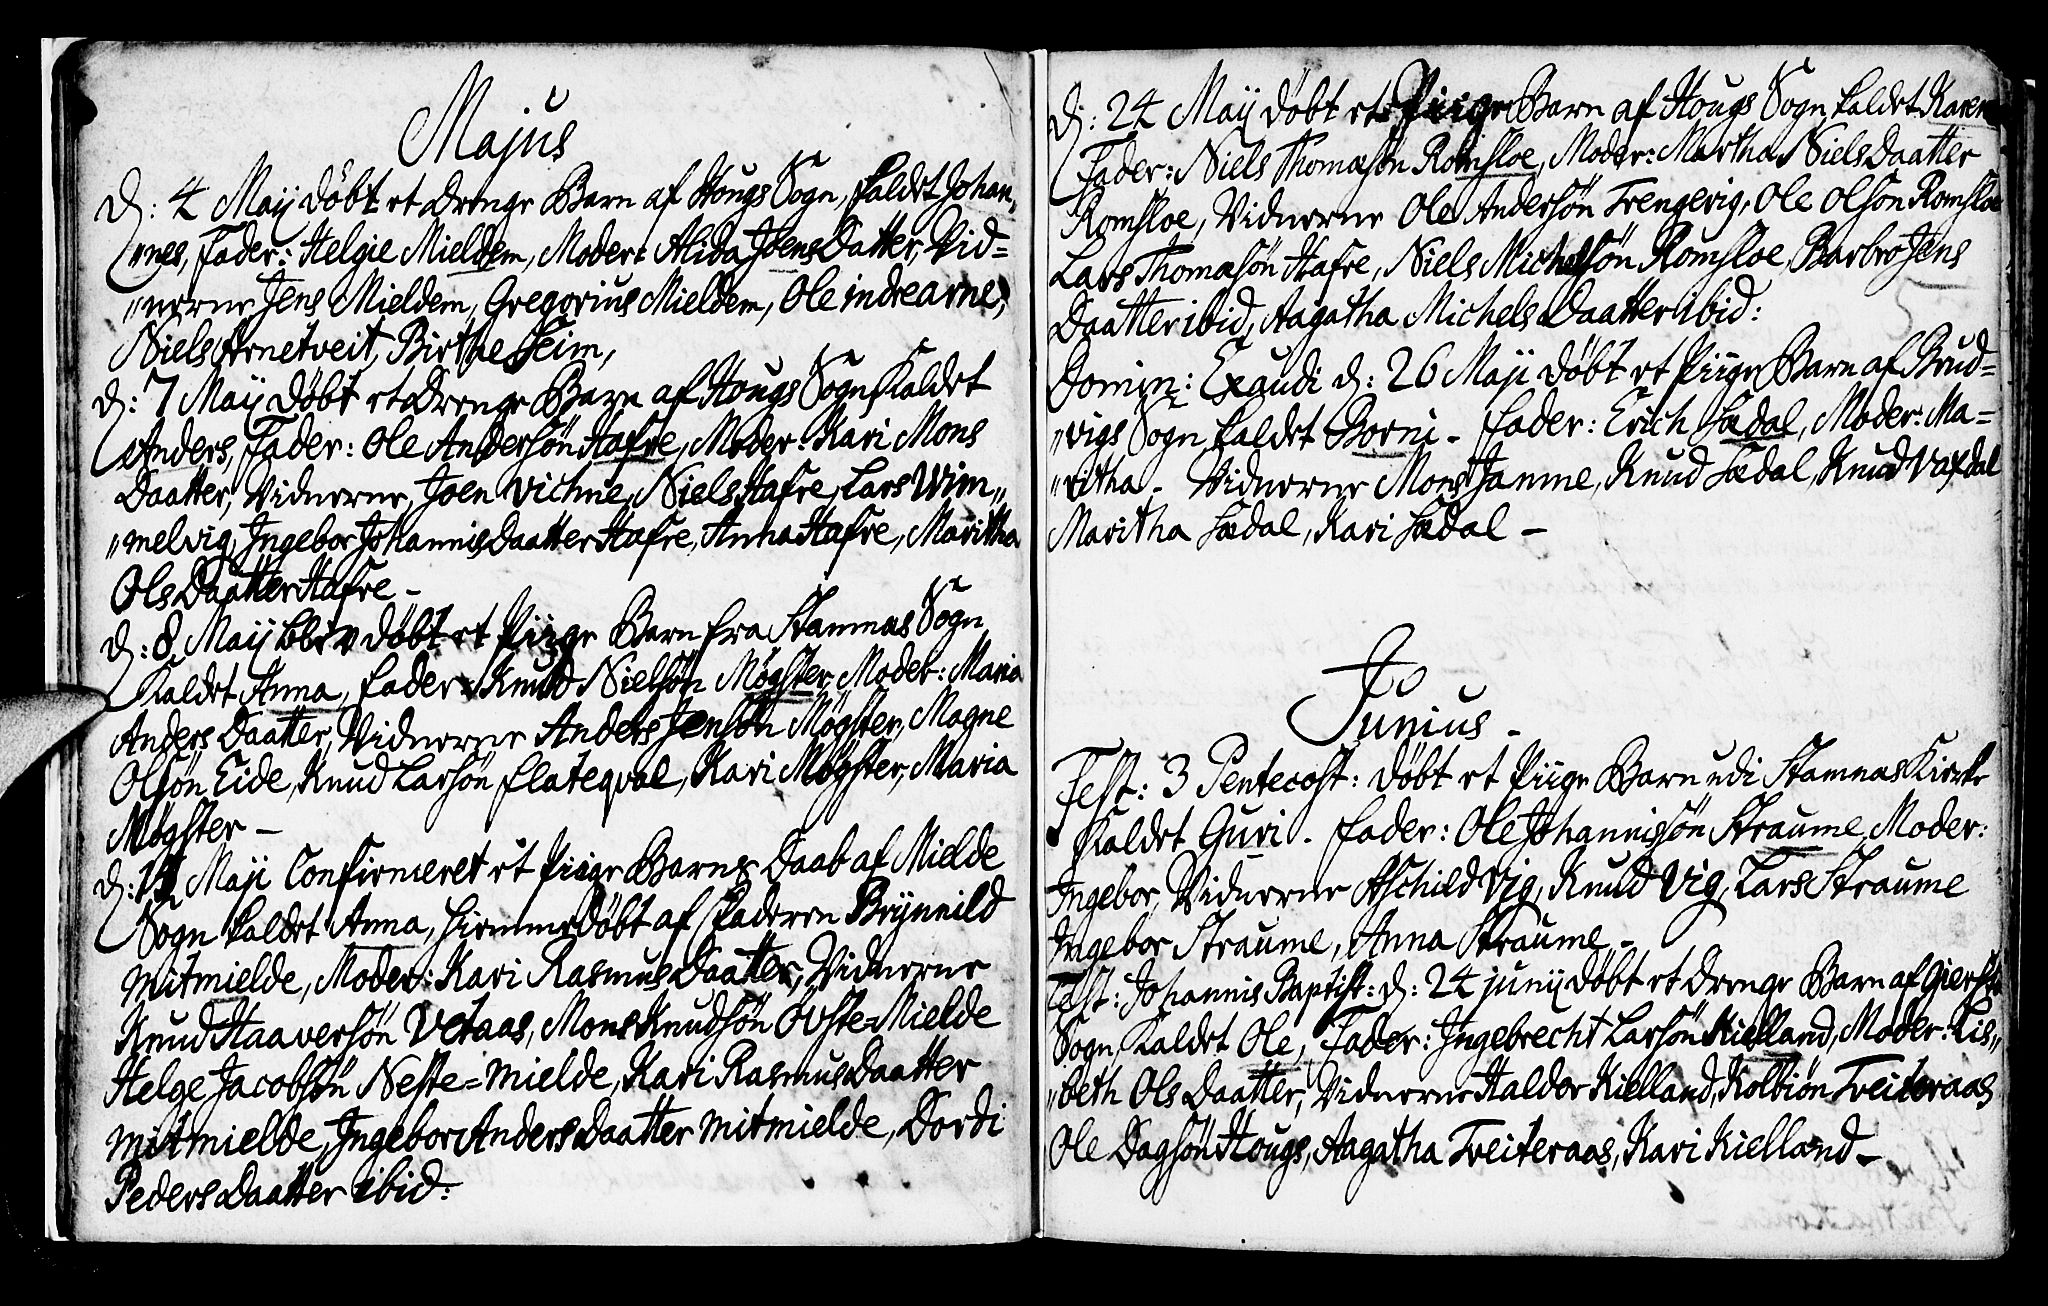 Majus
d: 4 Maij døbt et drenge Barn af Hougs Sogn, kaldet Johan,
"nes, Fader: Helgie Mieldem, Moder: Alida Joens Datter, Vid=
"nerne Jens Mieldem, Gregorius Mieldem, Ole indre arne,
Niels Arnetveit, Birthe Seim,
d: 7 Maij døbt et drenge Barn af Hougs Sogn, Kaldet
Anders, Fader: Ole Andersøn Hafre, Moder: Kari Mons
Daatter, Vidnerne, Joen Vichne, Niels Hafre, Lars Wim„
„melvig, Ingebor Johannis Daatter Hafre, Anna Hafre, Maritha
Ols Daatter Hafre –
d: 8 Maij blev døbt et Piige Barn fra Stamnæs Sogn
Kaldet Anna, Fader: Knud Nielsøn Møgster, Moder: Maria
Anders Daatter, Vidnerne Anders Jensøn Møgster, Magne
Olsøn Eide, Knud Larsøn Flateqval, Kari Møgster, Maria
Møgster –
d: Maji Confirmeret et Piige Barns Daab af Mielde
Sogn kaldet Anna, hiemmedøbt af Faderen Brÿnnild
mitmielde, Moder: Kari Rasmus Daatter, Vidnerne
Knud Haaversøn Vetaas, Mons Knudsøn Øvste=Mielde
Helge Jacobsøn Neste=mielde, Kari Rasmus Daatter
mitmielde, Ingebor Anders Daatter mitmielde, Dordi
Peders Daatter ibid:
d: 24 Maij døbt et Piige Barn af Hougs Sogn kaldet Karen
Fader: Niels Thomasøn Romsloe, Moder: Martha Niels Daatter
Romsloe, Vidnerne Ole Andersøn Trengerig, Ole Olson Romsloe
Lars Thomasøn Hafre, Niels Michelsøn Romsloe, Barbro Jens
Daatter ibid, Aagatha Michels Daatter ibid:
Domin: Exaudi d: 26 Maji døbt et Piige Barn af Brud=
„vigs Sogn kaldet Borni – Fader: Erich Sædal, Moder: Ma=
„ritha – Vidnerne Mons Jamne, Knud Sædal, Knud Vaxdal
Maritha Sædal, Kari Sædal –
Junius –
Fest: 3 Pentecost: døbt et Piige Barn udi Stamnæs Kirke
Kaldet Guri. Fader: Ole Johannissøn Straume, Moder:
Ingebor, Vidnerne Aschild Vig, Knud Vig, Lars Straume
Ingebor Straume, Anna Straume –
Fest: Johannis Baptist: d: 24 junij døbt et drenge Barn af
Sogn, Kaldet Ole, Fader: Ingebrecht Larsøn Kielland, Moder: Lis„
„beth Ols Daatter, Vidnerne Haldor Kielland, Kolbiøn Treiteraas
Ole Dagsøn Hougs, Aagatha Treiteraas, Kari Kielland –